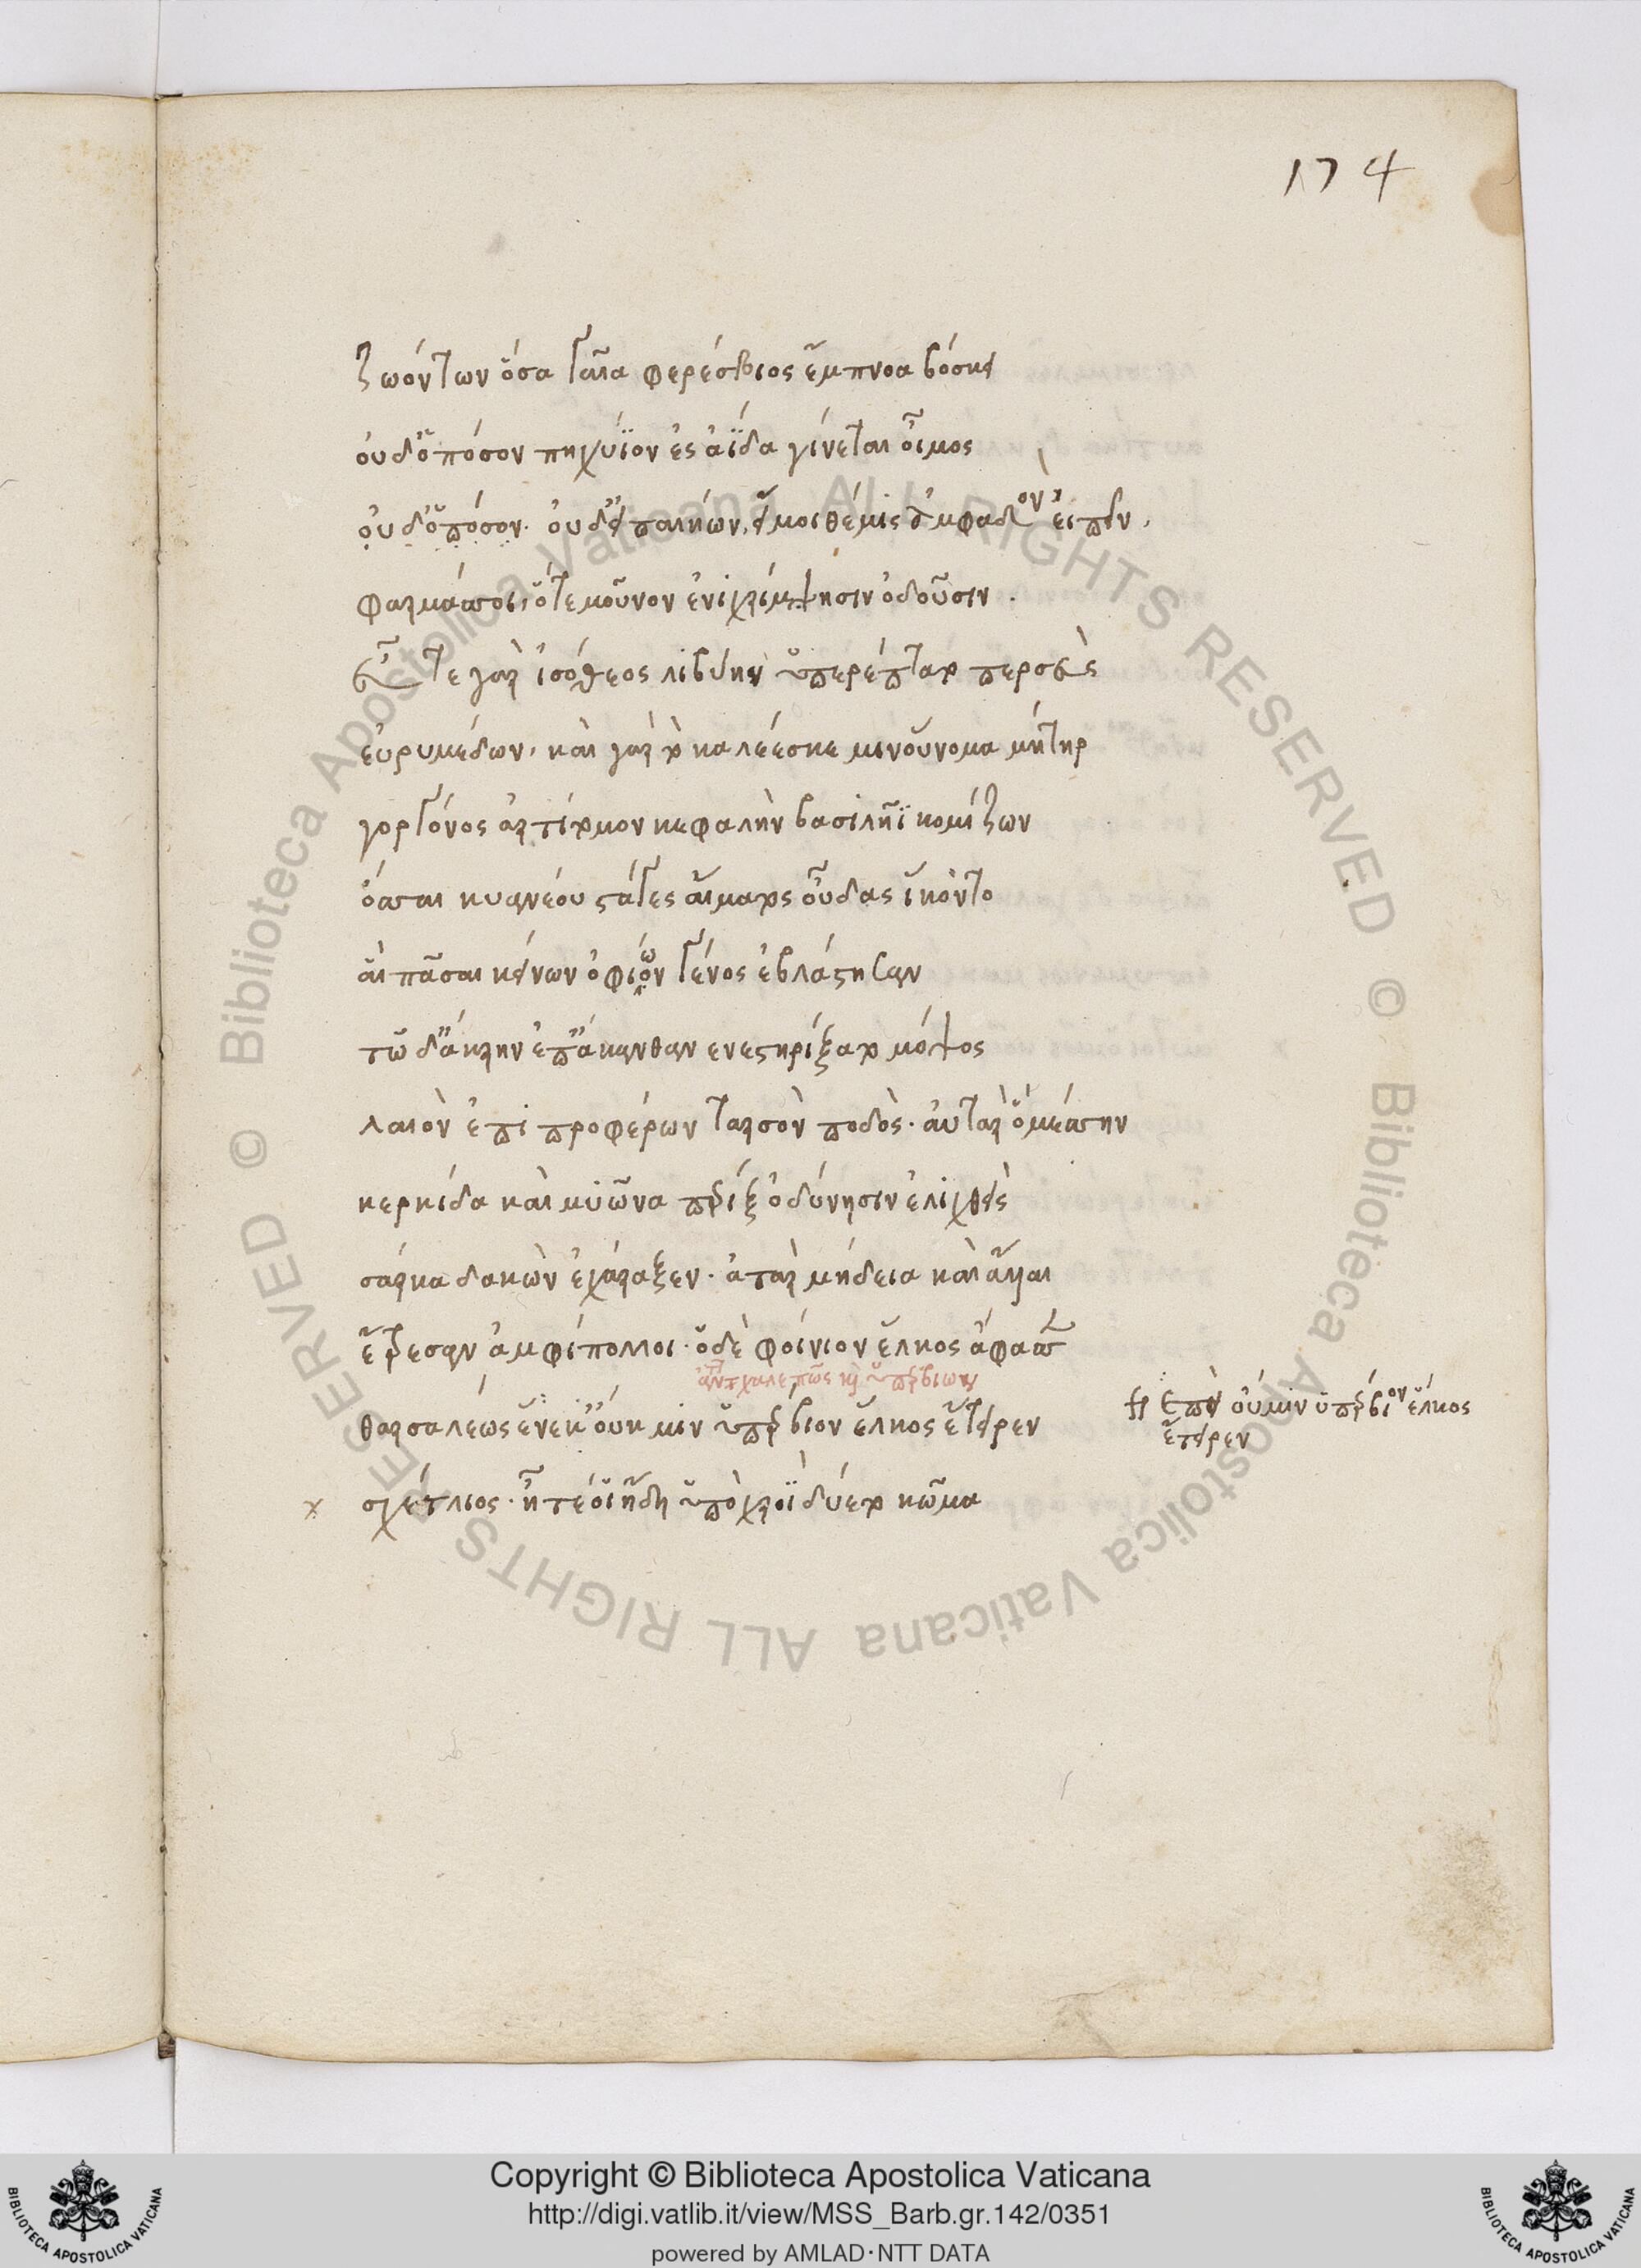 174
ζωόντων ὅσα γαῖα φερέσβιος ἔμπνοα βόσκει
οὐδ' ὁπόσον πηχύϊον ἐς ἀΐδα γίνεται οἶμος
οὐδ' ὁπόσον. οὐδ' εἰ παιήων, εἴ μοι θέμις ἀμφαδὸν εἰπεῖν,
φαρμάσσοι, ὅτε μοῦνον ἐνιχρίμψησιν ὀδοῦσιν.
Εὖτε γὰρ ἰσόθεος λιβύην ὑπερέπτατο περσεὺς
εὐρυμέδων, καὶ γὰρ τὸ καλέεσκέ μιν οὔνομα μήτηρ
γοργόνος ἀρτίτομον κεφαλὴν βασιλῆϊ κομίζων
ὅσσαι κυανέου στάγες αἵματος οὖδας ἵκοντο
αἱ πᾶσαι κείνων ὀφιῶν γένος ἐβλάστησαν
τῶ δ' ἄκρην ἐπ' ἄκανθαν ενεστηρίξατο μόψος
λαιὸν ἐπιπροφέρων ταρσὸν ποδὸς. αὐτὰρ ὁ μέσσην
κερκίδα καὶ μυῶνα πέριξ ὀδύνησιν ἑλιχθεὶς
σάρκα δακὼν ἐχάραξεν. ἀτὰρ μήδεια καὶ ἄλλαι
ἔτρεσαν ἀμφίπολοι. ὁ δὲ φοίνιον ἕλκος ἄφασσεν
θαρσαλέως ἕνεκ' οὔκ μιν ὑπέρβιον ἕλκος ἔτειρεν
ἐπεὶ οὔ μιν ὑπέρβιον ἕλκος
ἔτειρεν
σχέτλιος. ἦ τέ οἱ ἤδη ὑπὸ χροῒ δύετο κῶμα
© Biblioteca Apostolica Vaticana ALL RIGHTS RESERVED © Biblioteca Apostolica Vaticana ALL RIGHTS RESERVED
BIBLIOTECA APOSTOLICA VATICANA
Copyright © Biblioteca Apostolica Vaticana
http://digi.vatlib.it/view/MSS_Barb.gr.142/0351
powered by AMLAD·NTT DATA
BIBLIOTECA APOSTOLICA VATICANA